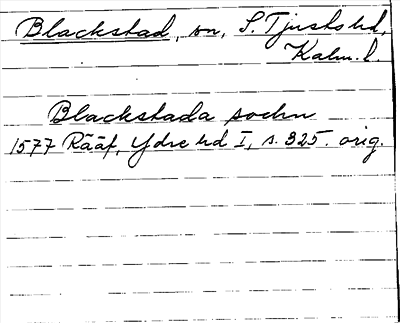 Blackstad, sn, S. Tjusts hd,
Kalm. l.
Blackstada sochn
1577 Rääf, Ydre hd I, s. 325. orig.